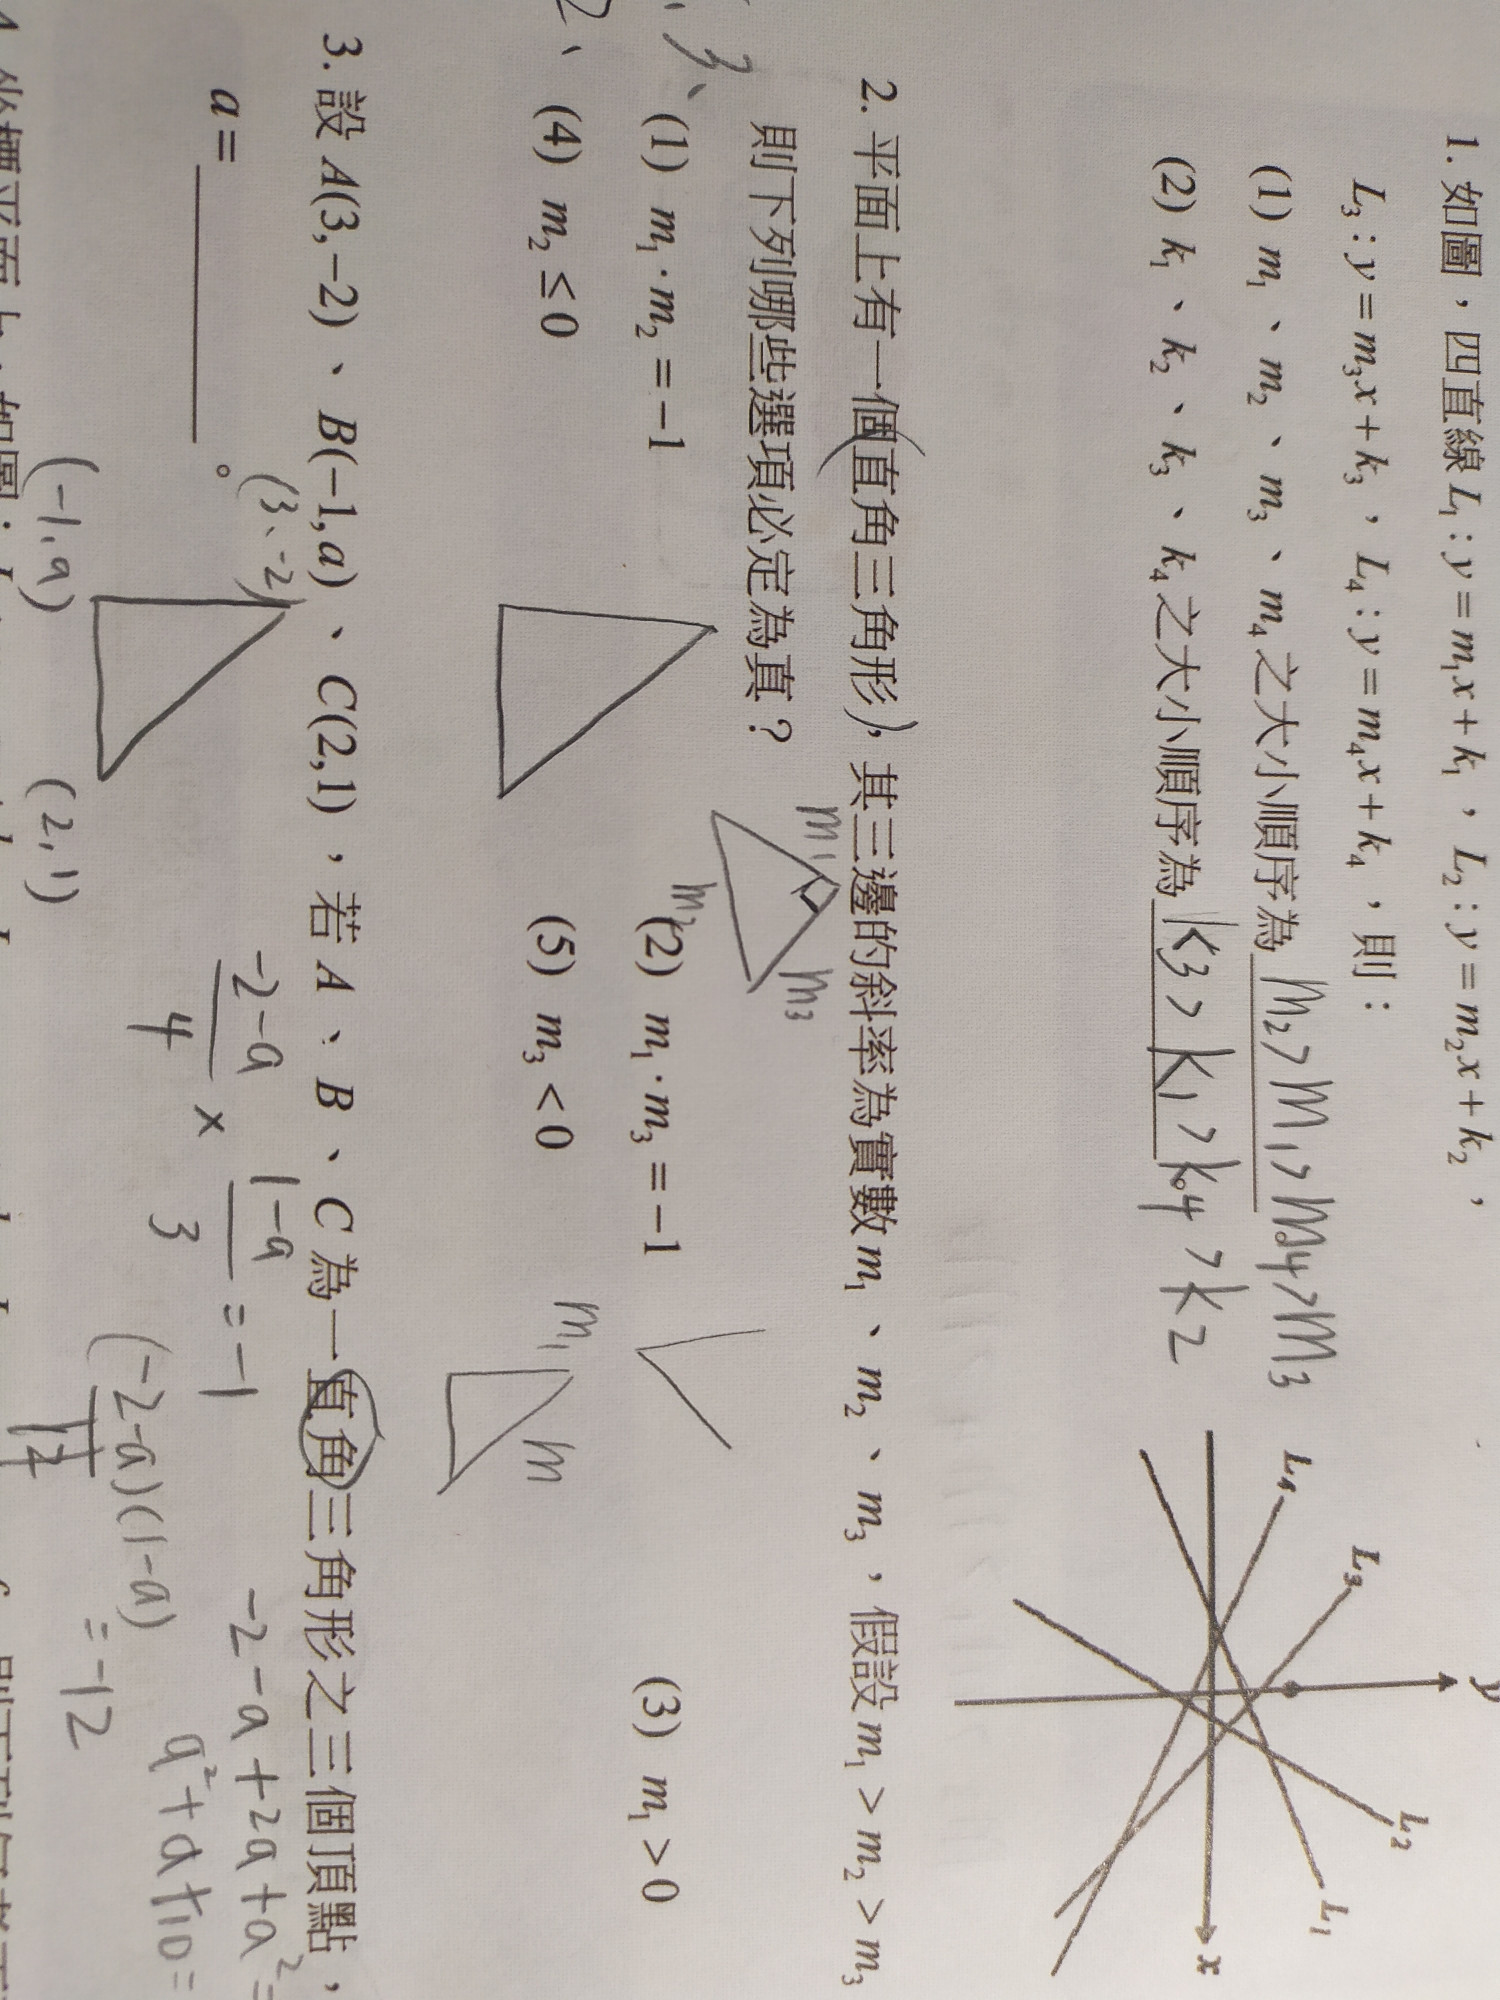 1. 如圖，四直線 L₁ : y = m₁x + k₁，L₂ : y = m₂x + k₂，
L₃ : y = m₃x + k₃，L₄ : y = m₄x + k₄，則：
(1) m₁、m₂、m₃、m₄之大小順序為 m₂>m₁>m₄>m₃
(2) k₁、k₂、k₃、k₄之大小順序為 k₃>k₁>k₄>k₂
y
L₄
L₃
L₂
L₁
x
2. 平面上有一個直角三角形，其三邊的斜率為實數 m₁、m₂、m₃，假設 m₁ > m₂ > m₃
則下列哪些選項必定為真？
m₁
m₂
m₃
(1) m₁ · m₂ = −1
(2) m₁ · m₃ = −1
(3) m₁ > 0
(4) m₂ ≤ 0
(5) m₃ < 0
m₁
m
3. 設 A(3,−2)、B(−1,a)、C(2,1)，若 A、B、C 為一直角三角形之三個頂點，
a =
。
(3、-2)
(-1,a)
(2,1)
-2-a
4
×
1-a
3
= -1
-2-a+2a+a² =
(-2-a)(1-a)
12
= -12
a²+a+10=